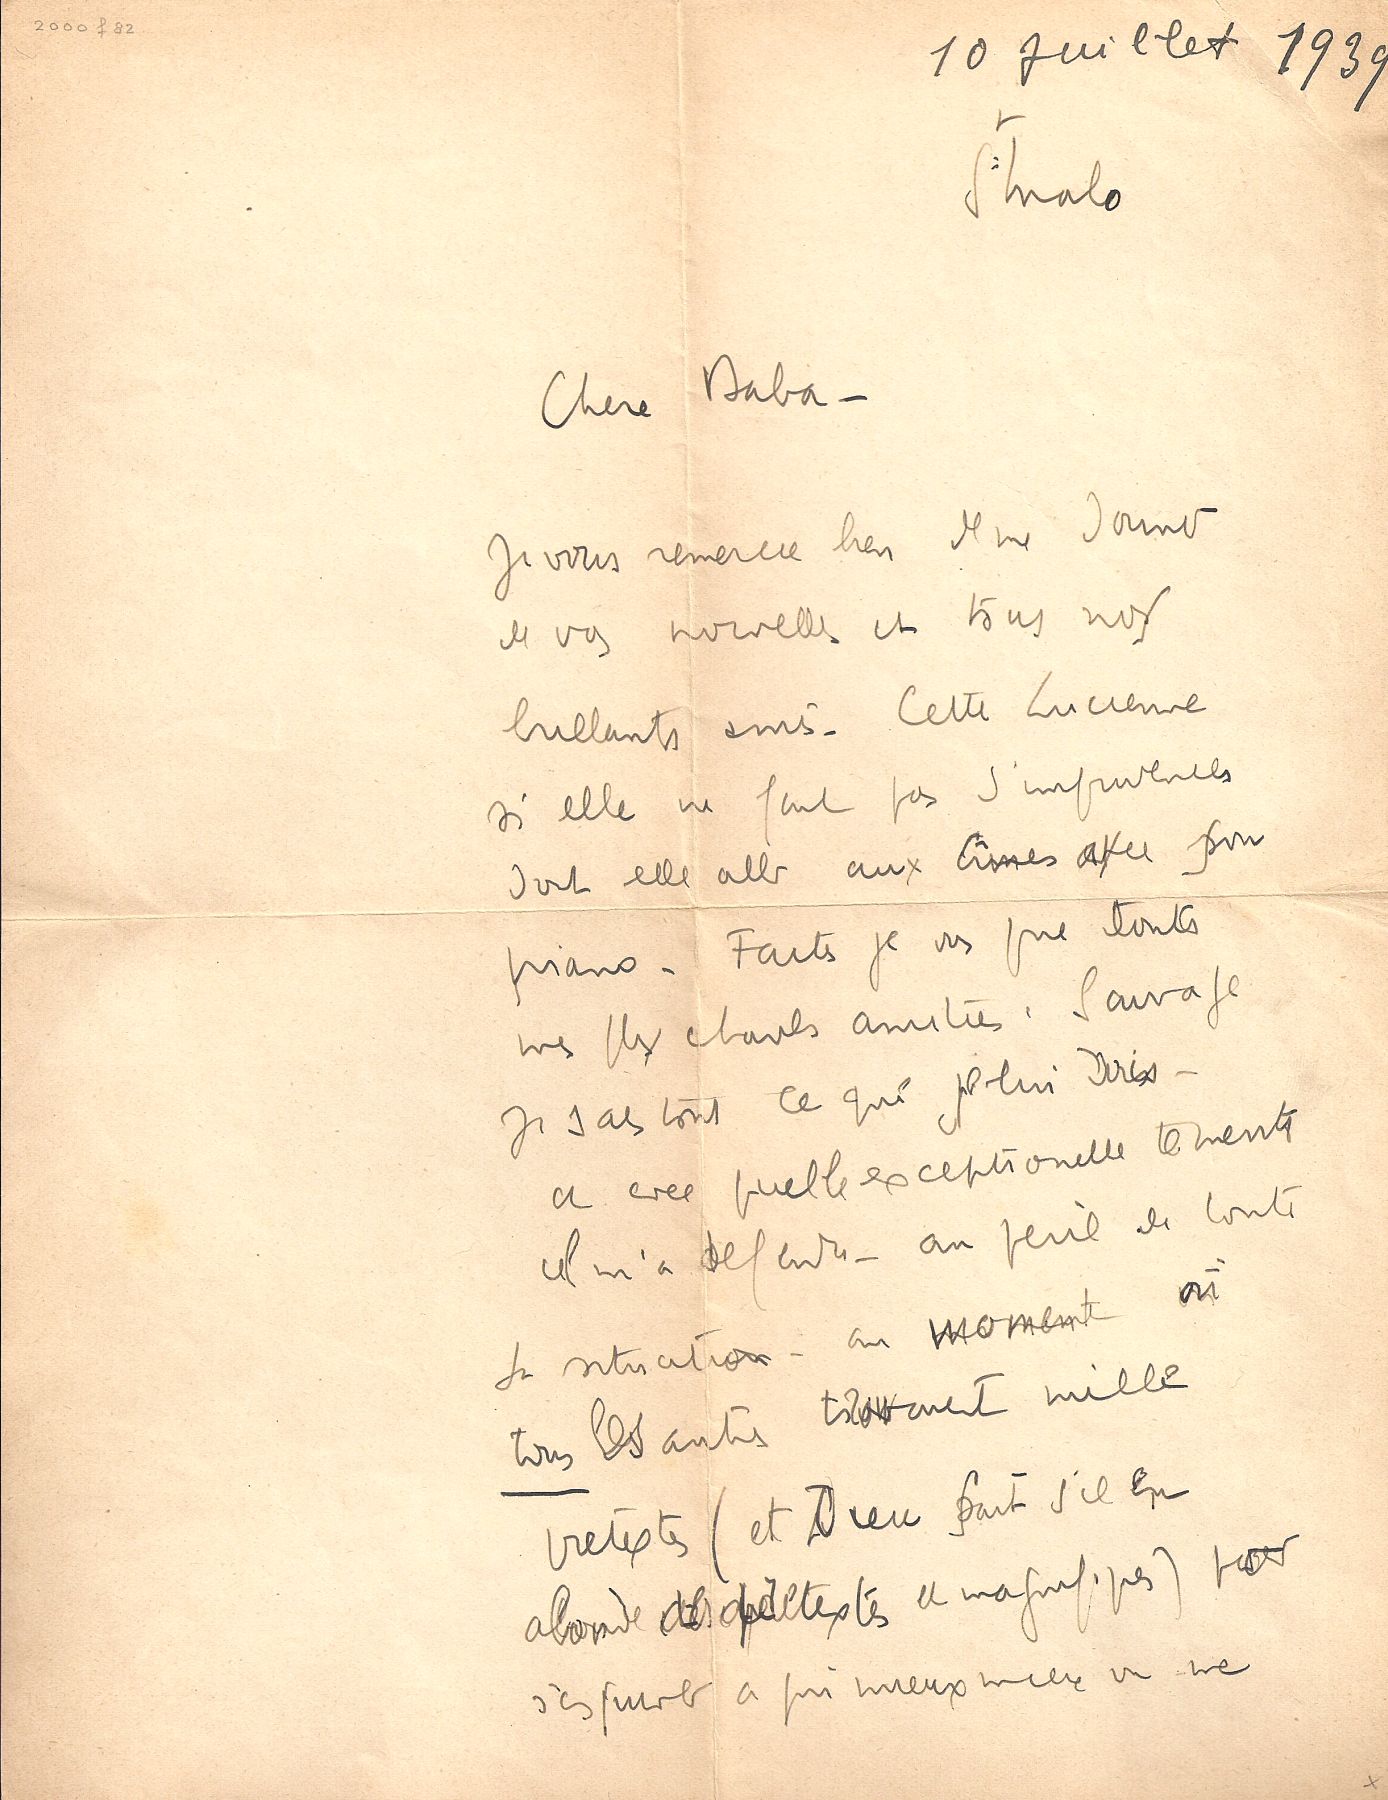 2000 f 82
10 juillet 1939
St Malo
Chere Baba –
Je vous remercie bien de me donner
de vos nouvelles et tous nos
brillants amis – Cette Lucienne
si elle ne fait pas d'imprudences
doit elle aller aux cimes avec son
piano – Faites je vs prie toutes
mes plus chaudes amitiés à Sauvage
Je sais tout ce que je lui dois –
et avec quelle exceptionelle temerité
il m'a defendu – au peril de toute
sa situation – au moment où
tous les autres trouvaient mille
pretextes (et Dieu sait s'il en
abonde des pretextes et magnifiques) pour
s'esquiver a qui mieux mieux me
x